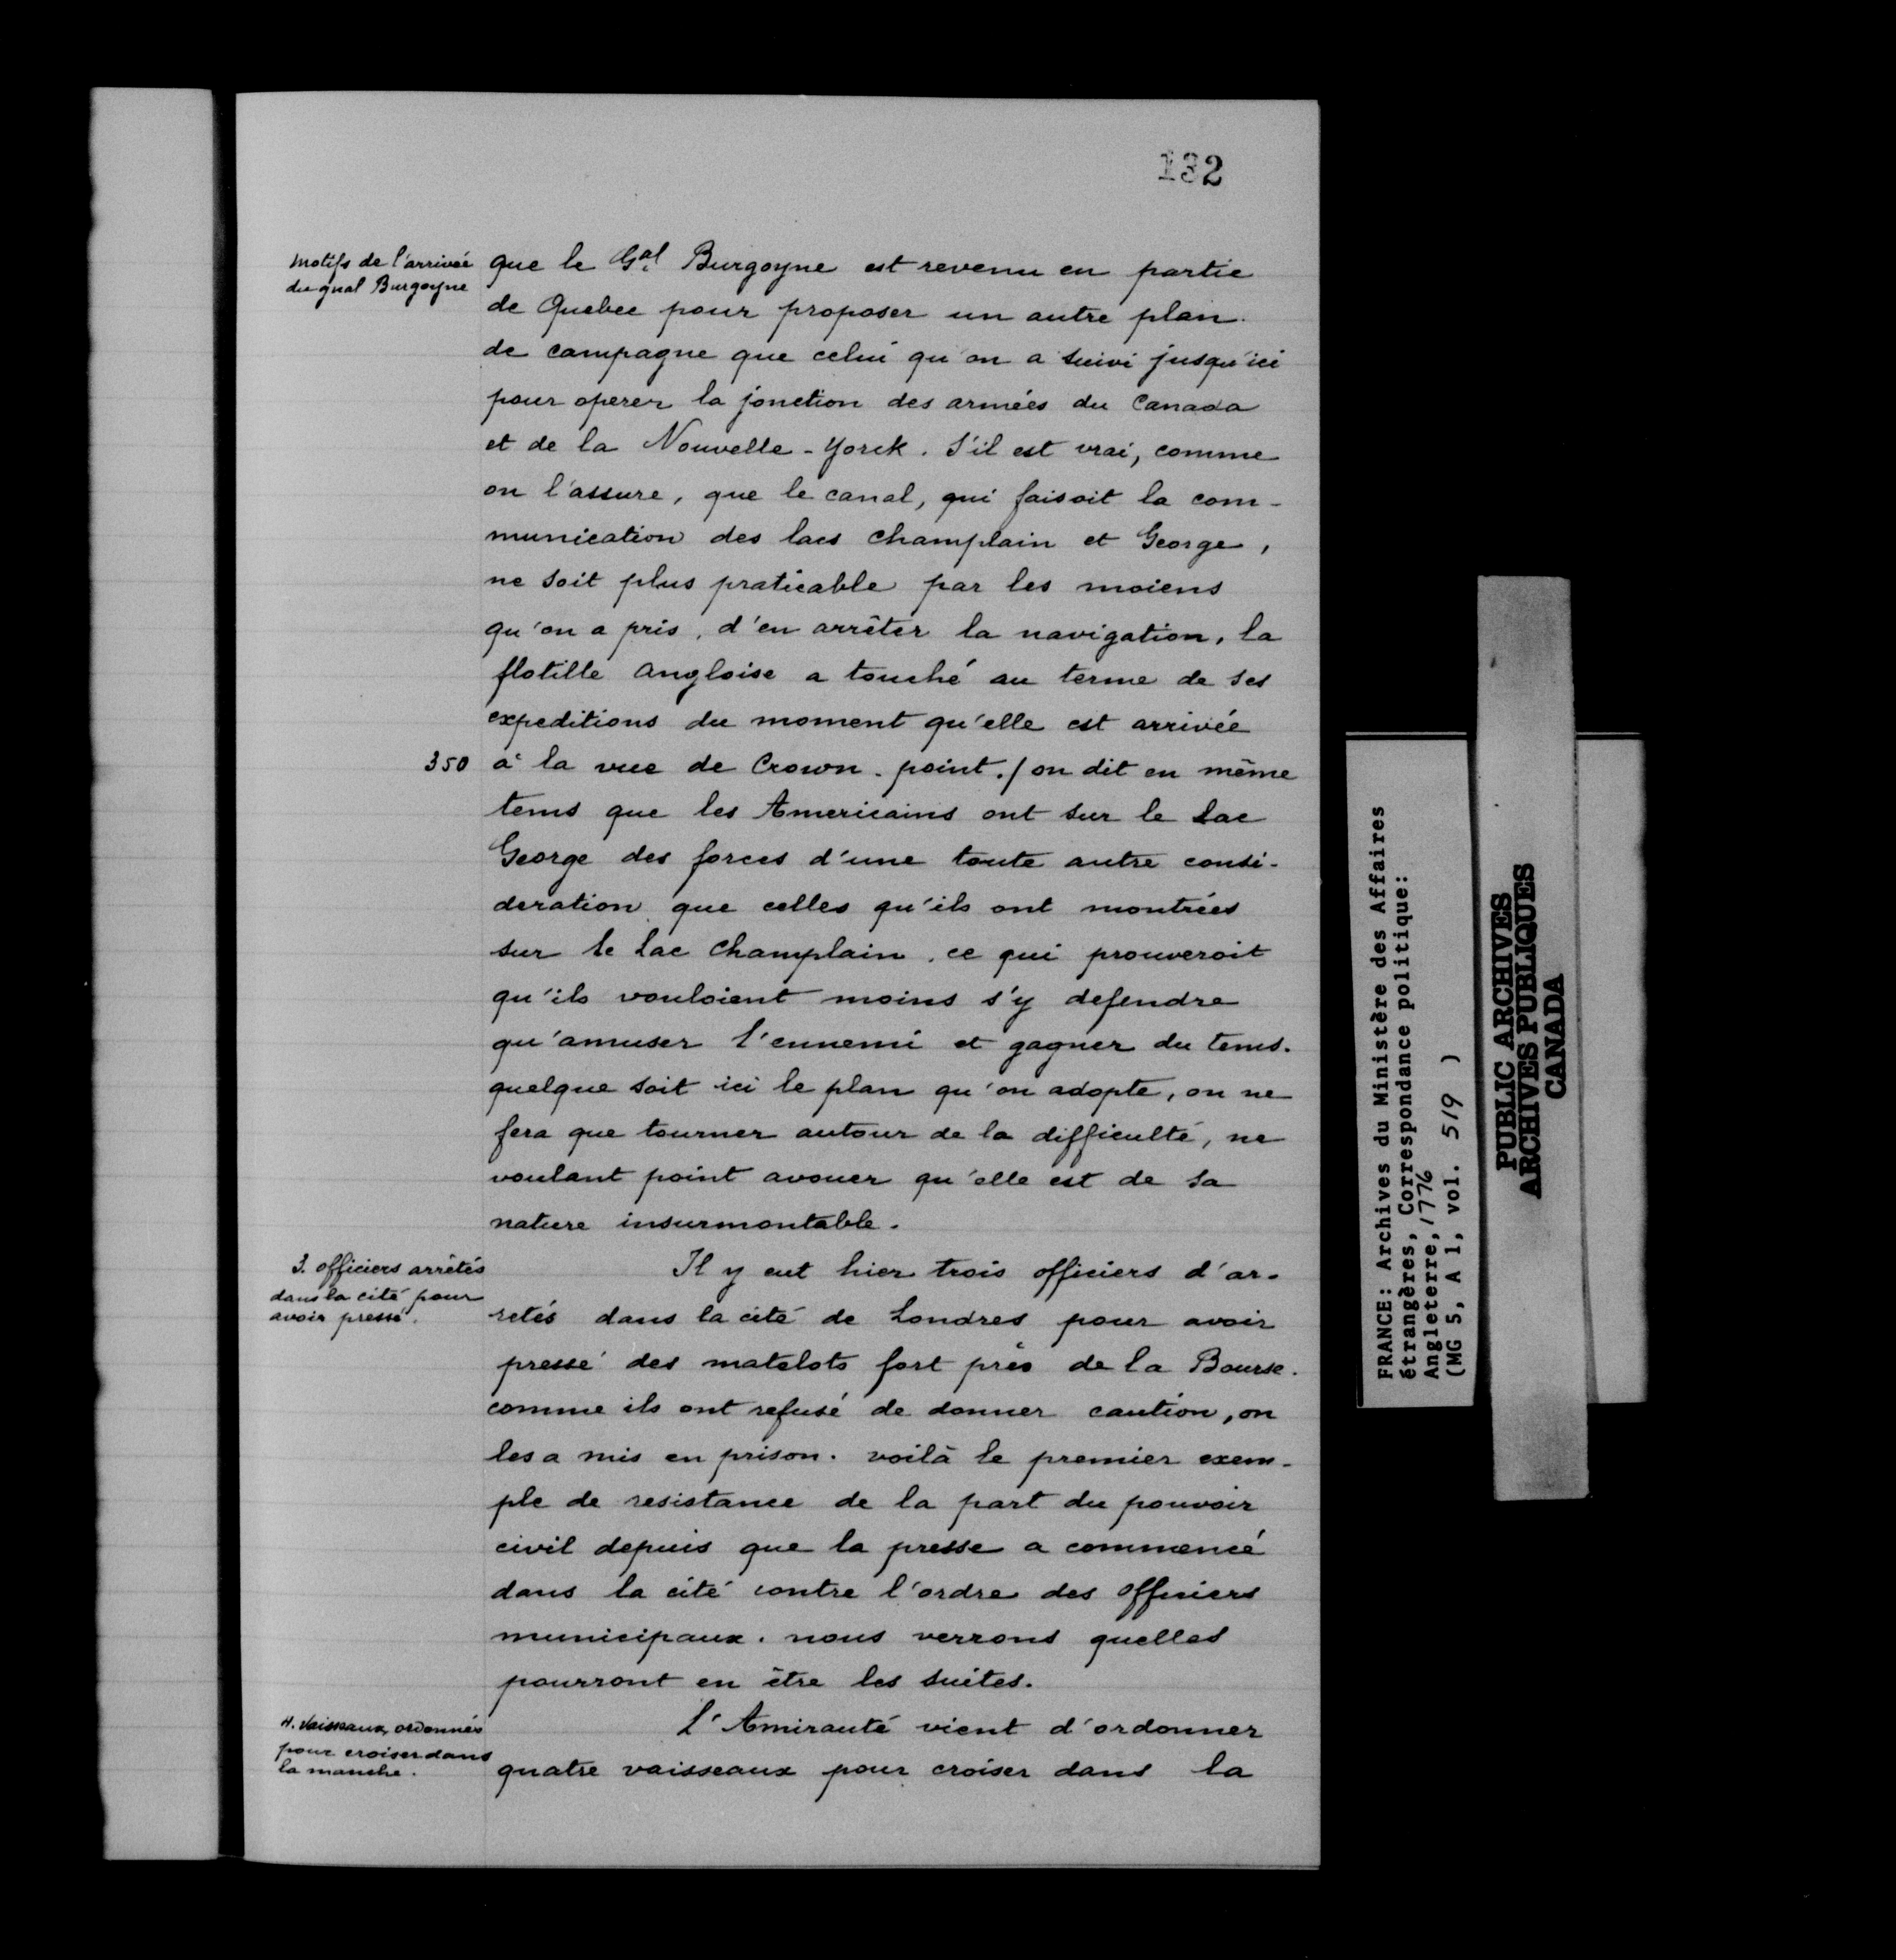 132
Motifs de l'arrivée
du gnal Burgoyne
que le Gal Burgoyne est revenu en partie
de Quebec pour proposer un autre plan
de campagne que celui qu'on a suivi jusqu'ici
pour operer la jonction des armées du Canada
et de la Nouvelle-Yorck. S'il est vrai, comme
on l'assure, que le canal, qui faisoit la com-
munication des lacs Champlain et George,
ne soit plus praticable par les moiens
qu'on a pris, d'en arrêter la navigation, la
flotille angloise a touché au terme de ses
expeditions du moment qu'elle est arrivée
350 à la vue de Crown-point./on dit en même
tems que les Americains ont sur le Lac
George des forces d'une toute autre consi-
deration que celles qu'ils ont montrées
sur le Lac Champlain, ce qui prouveroit
qu'ils vouloient moins s'y defendre
qu'amuser l'ennemi et gagner du tems.
quelque soit ici le plan qu'on adopte, on ne
fera que tourner autour de la difficulté, ne
voulant point avouer qu'elle est de sa
nature insurmontable.
3. officiers arrêtés
dans la cité pour
avoir pressé.
Il y eut hier trois officiers d'ar-
retés dans la cité de Londres pour avoir
pressé des matelots fort près de la Bourse.
comme ils ont refusé de donner caution, on
les a mis en prison. voilà le premier exem-
ple de resistance de la part du pouvoir
civil depuis que la presse a commencé
dans la cité contre l'ordre des officiers
municipaux. nous verrons quelles
pourront en être les suites.
4. Vaisseaux ordonnés
pour croiser dans
la manche.
L'Amirauté vient d'ordonner
quatre vaisseaux pour croiser dans la
FRANCE: Archives du Ministère des Affaires
étrangères, Correspondance politique:
Angleterre, 1776
(MG 5, A 1, vol. 519 )
PUBLIC ARCHIVES
ARCHIVES PUBLIQUES
CANADA